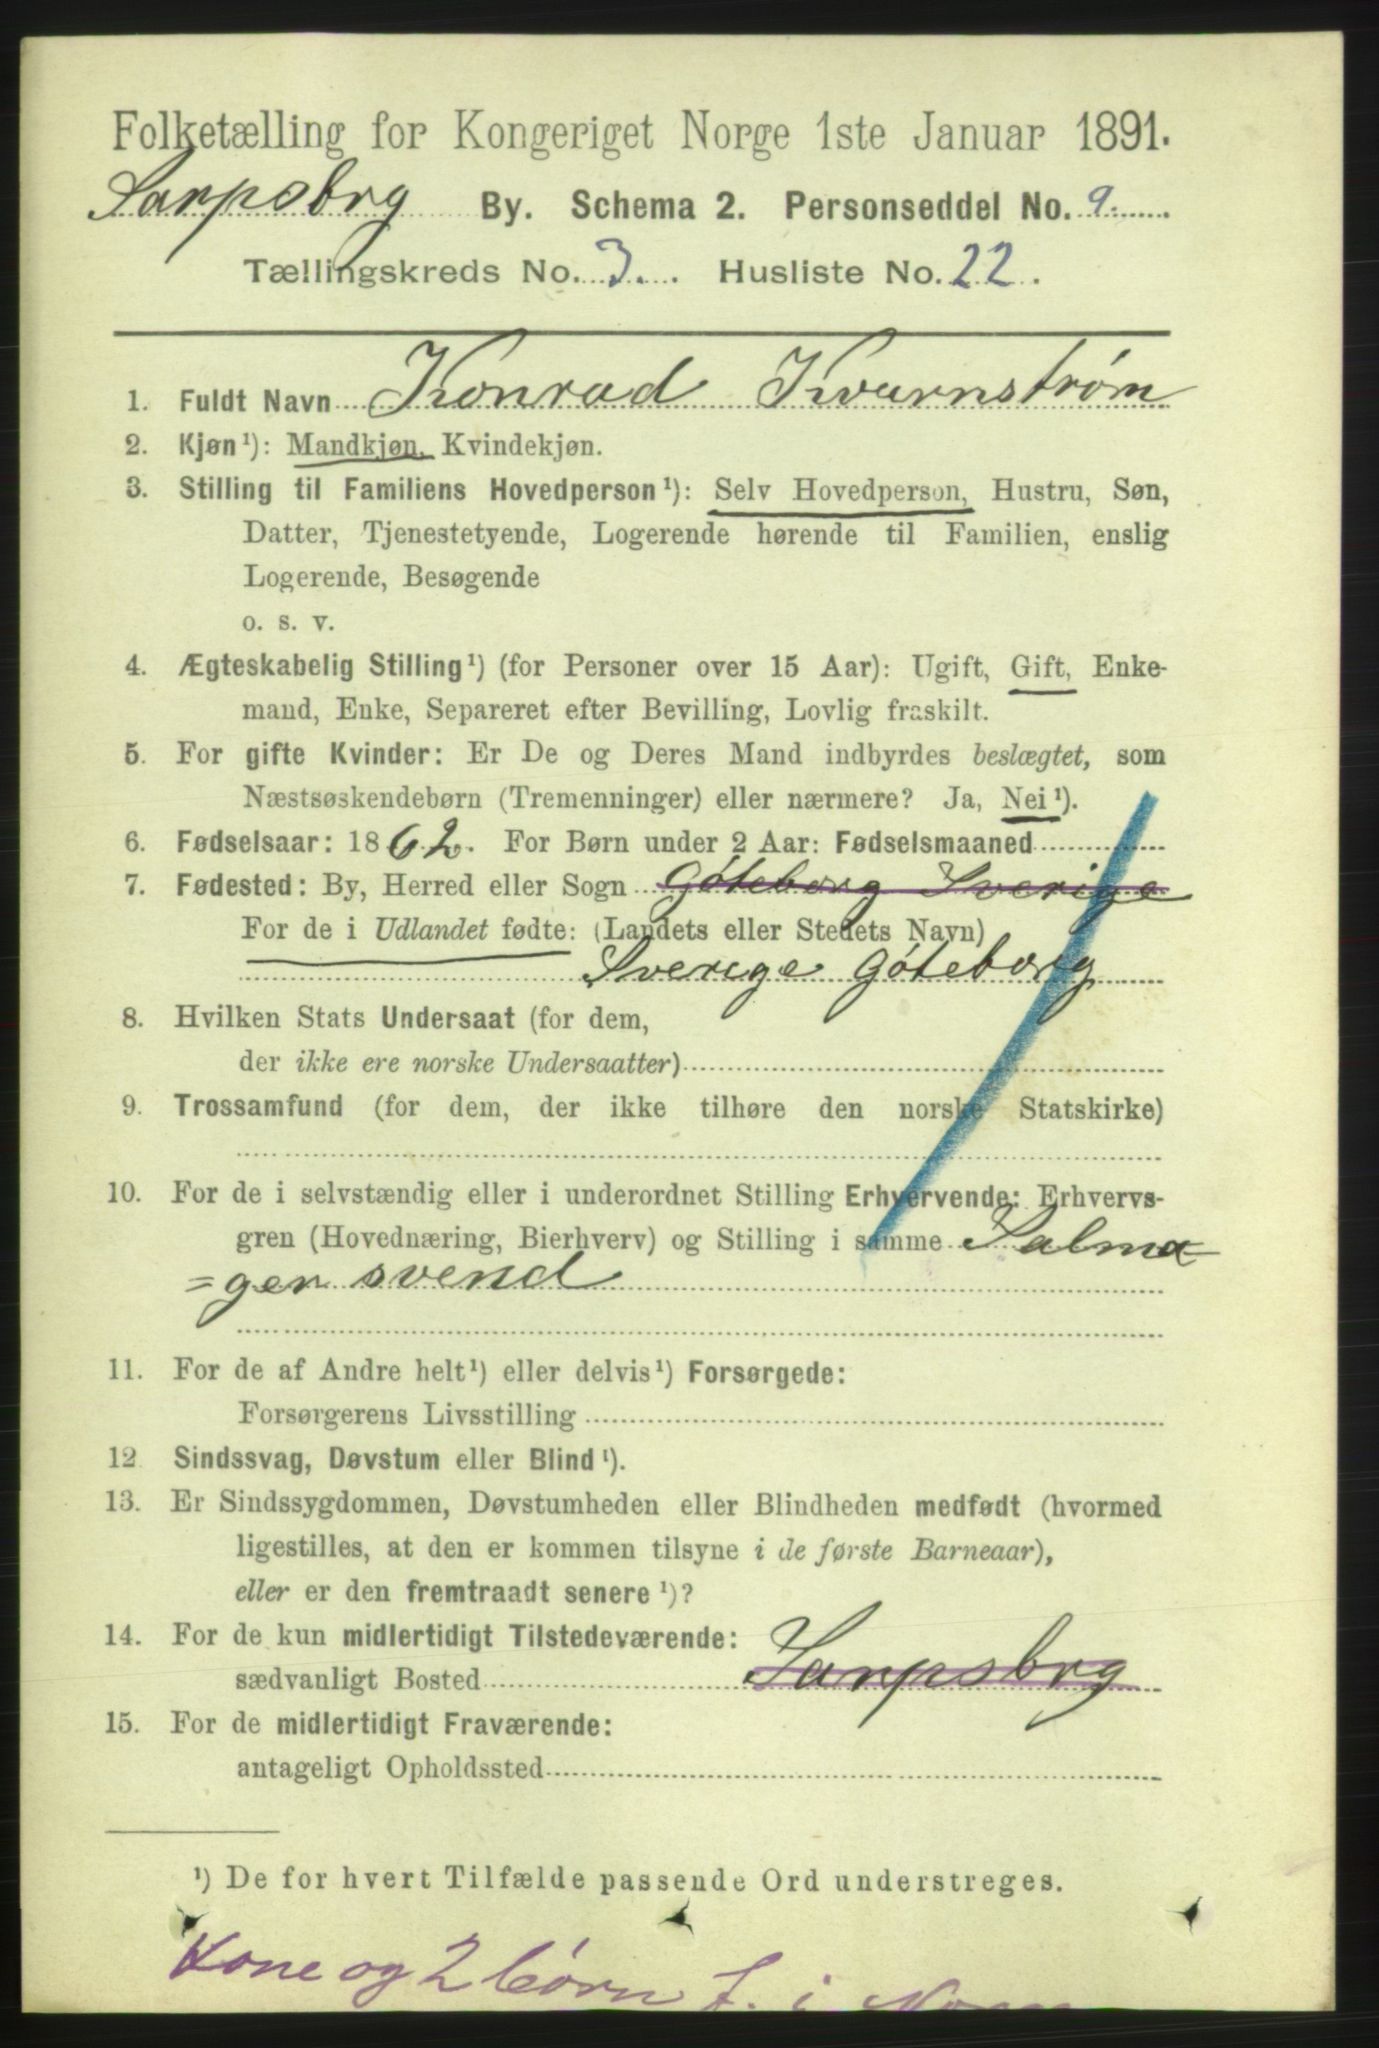 Folketælling for Kongeriget Norge 1ste Januar 1891.
Sarpsbrg By. Schema 2. Personseddel No. 9
Tællingskreds No. 3. Husliste No. 22.
1. Fuldt Navn Konrad Kvarnstrøm
2. Kjøn¹): Mandkjøn, Kvindekjøn.
3. Stilling til Familiens Hovedperson¹): Selv Hovedperson, Hustru, Søn,
Datter, Tjenestetyende, Logerende hørende til Familien, enslig
Logerende, Besøgende
o. s. v.
4. Ægteskabelig Stilling¹) (for Personer over 15 Aar): Ugift, Gift, Enke-
mand, Enke, Separeret efter Bevilling, Lovlig fraskilt.
5. For gifte Kvinder: Er De og Deres Mand indbyrdes beslægtet, som
Næstsøskendebørn (Tremenninger) eller nærmere? Ja, Nei¹).
6. Fødselsaar: 1862. For Børn under 2 Aar: Fødselsmaaned
7. Fødested: By, Herred eller Sogn Göteborg Sverige
For de i Udlandet fødte: (Landets eller Stedets Navn)
Sverige Göteborg
8. Hvilken Stats Undersaat (for dem,
der ikke ere norske Undersaatter)
9. Trossamfund (for dem, der ikke tilhøre den norske Statskirke)
10. For de i selvstændig eller i underordnet Stilling Erhvervende: Erhvervs-
gren (Hovednæring, Bierhverv) og Stilling i samme Salma
=ger svend
11. For de af Andre helt¹) eller delvis¹) Forsørgede:
Forsørgerens Livsstilling
12 Sindssvag, Døvstum eller Blind¹).
13. Er Sindssygdommen, Døvstumheden eller Blindheden medfødt (hvormed
ligestilles, at den er kommen tilsyne i de første Barneaar),
eller er den fremtraadt senere¹)?
14. For de kun midlertidigt Tilstedeværende:
sædvanligt Bosted Sarpsbrg
15. For de midlertidigt Fraværende:
antageligt Opholdssted
¹) De for hvert Tilfælde passende Ord understreges.
Kone og 2 børn f. i